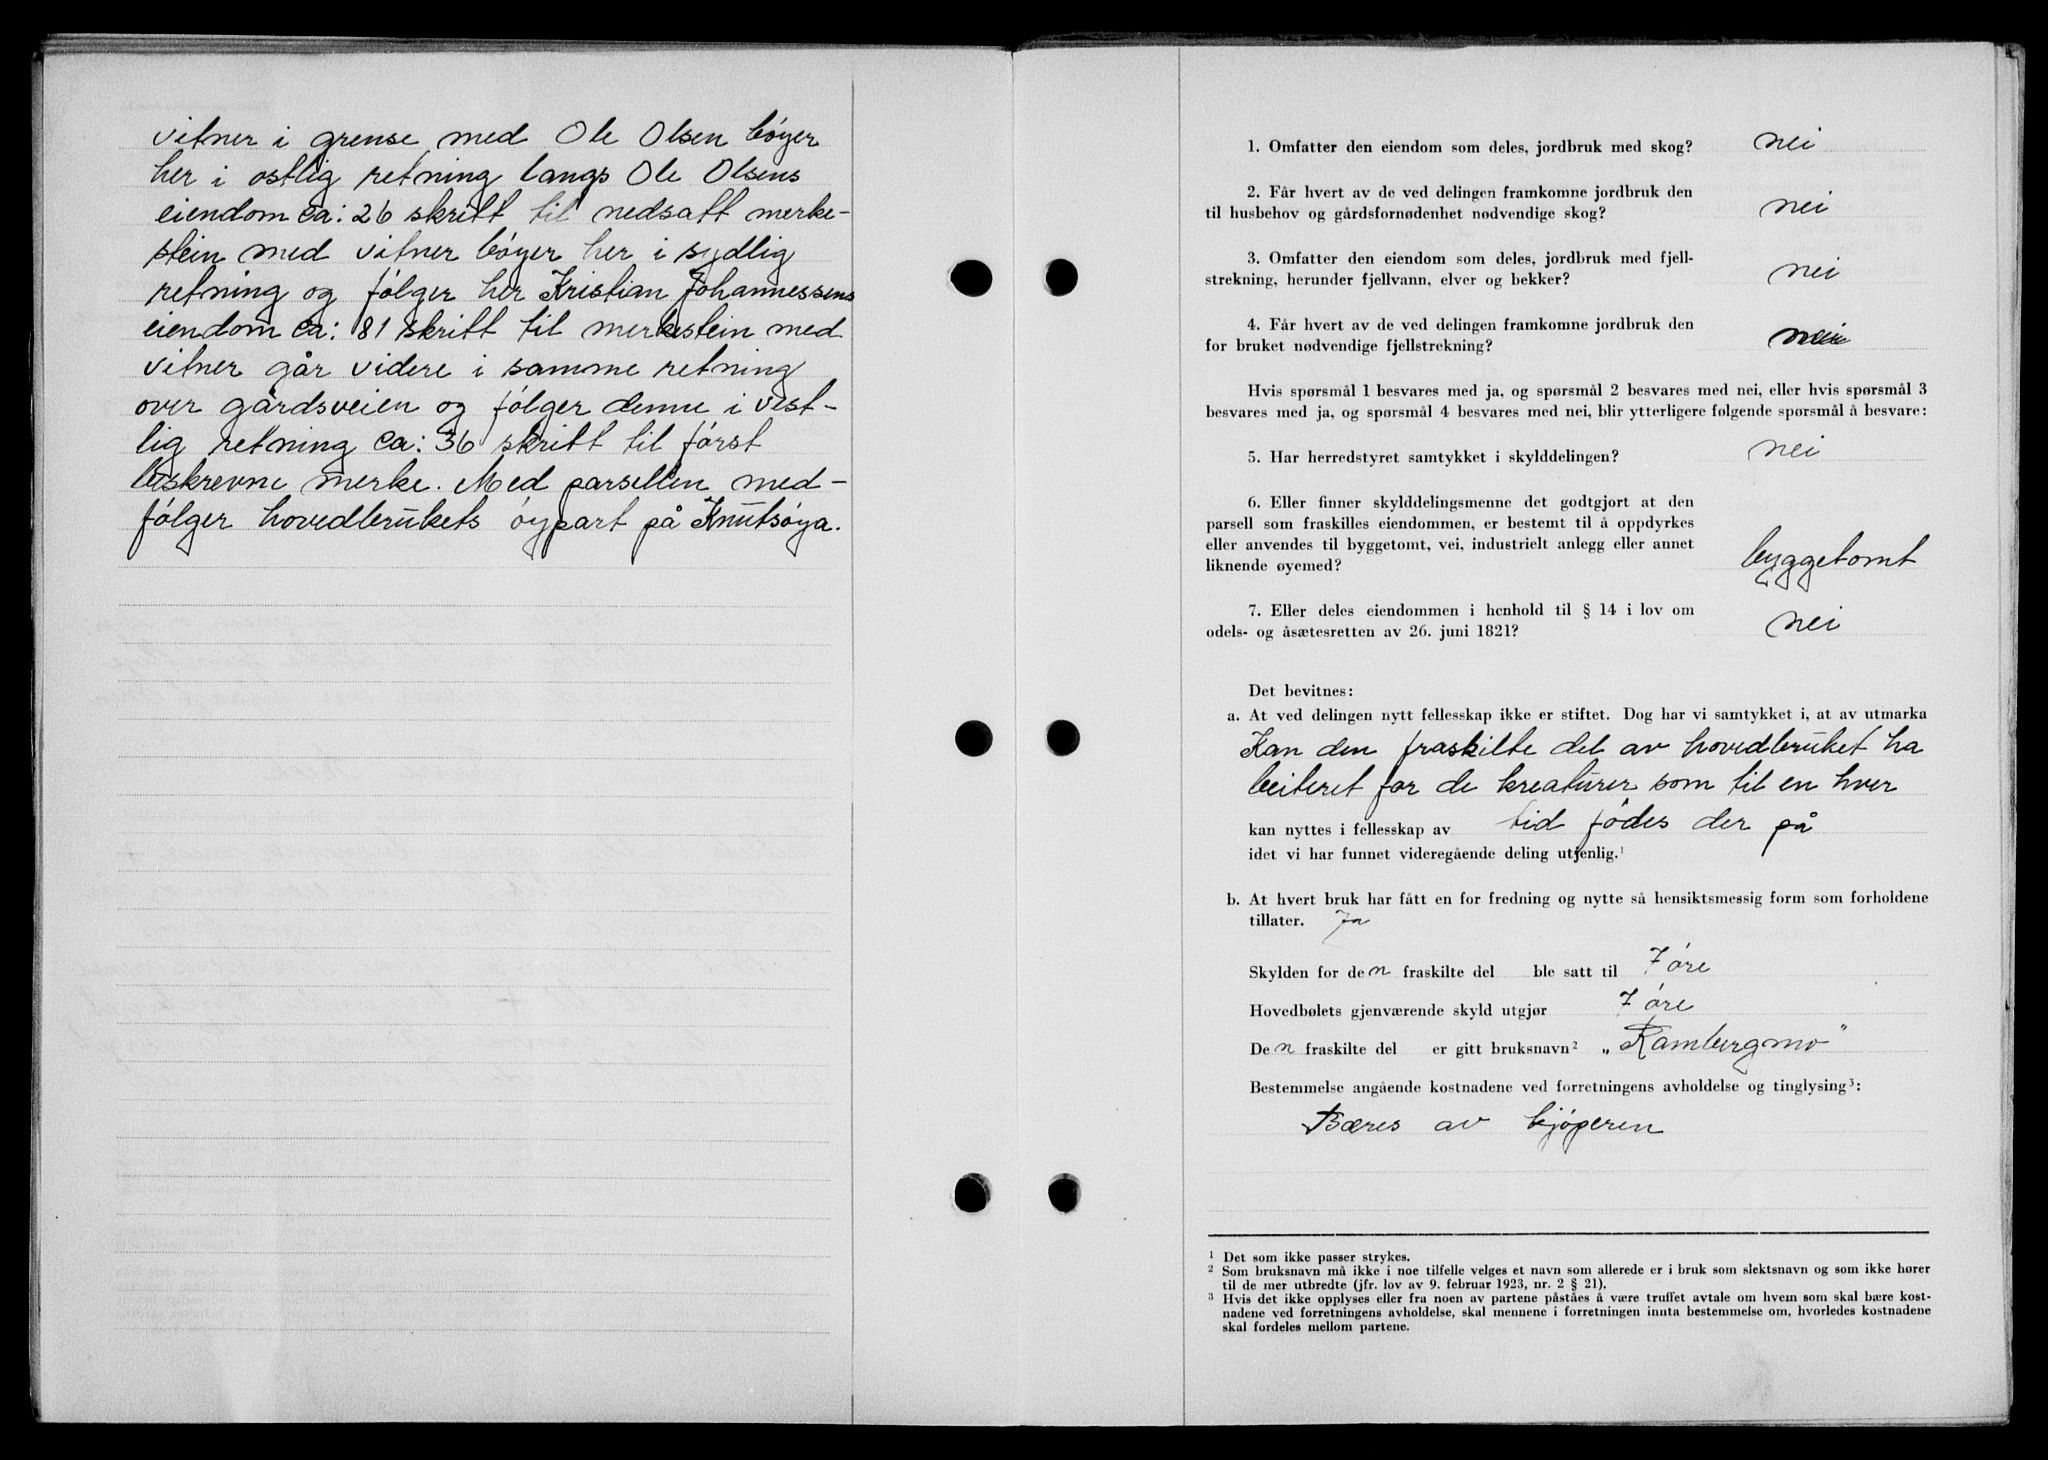 vitner i grense med Ole Olsen bøyer
her i østlig retning langs Ole Olsens
eiendom ca: 26 skritt til nedsatt merke-
stein med vitner bøyer her i sydlig
retning og følger her Kristian Johannessens
eiendom ca: 81 skritt til merkestein med
vitner går videre i samme retning
over gårdsveien og følger denne i vest-
lig retning ca: 36 skritt til først
beskrevne merke. Med parsellen med-
følger hovedbrukets øypart på Knutsøya.
1. Omfatter den eiendom som deles, jordbruk med skog? nei
2. Får hvert av de ved delingen framkomne jordbruk den
til husbehov og gårdsfornødenhet nødvendige skog? nei
3. Omfatter den eiendom som deles, jordbruk med fjell-
strekning, herunder fjellvann, elver og bekker? nei
4. Får hvert av de ved delingen framkomne jordbruk den
for bruket nødvendige fjellstrekning? nei
Hvis spørsmål 1 besvares med ja, og spørsmål 2 besvares med nei, eller hvis spørsmål 3
besvares med ja, og spørsmål 4 besvares med nei, blir ytterligere følgende spørsmål å besvare:
5. Har herredstyret samtykket i skylddelingen? nei
6. Eller finner skylddelingsmenne det godtgjort at den
parsell som fraskilles eiendommen, er bestemt til å oppdyrkes
eller anvendes til byggetomt, vei, industrielt anlegg eller annet
liknende øyemed? byggetomt
7. Eller deles eiendommen i henhold til § 14 i lov om
odels- og åsætesretten av 26. juni 1821? nei
Det bevitnes:
a. At ved delingen nytt fellesskap ikke er stiftet. Dog har vi samtykket i, at av utmarka
Kan den fraskilte del av hovedbruket ha
beiteret for de kreaturer som til en hver
kan nyttes i fellesskap av tid fødes der på
idet vi har funnet videregående deling utjenlig.¹
b. At hvert bruk har fått en for fredning og nytte så hensiktsmessig form som forholdene
tillater. Ja
Skylden for den fraskilte del ble satt til 7 øre
Hovedbølets gjenværende skyld utgjør 7 øre
Den fraskilte del er gitt bruksnavn² „Rambergmo"
Bestemmelse angående kostnadene ved forretningens avholdelse og tinglysing³:
Bæres av kjøperen
¹ Det som ikke passer strykes.
² Som bruksnavn må ikke i noe tilfelle velges et navn som allerede er i bruk som slektsnavn og som ikke hører
til de mer utbredte (jfr. lov av 9. februar 1923, nr. 2 § 21).
³ Hvis det ikke opplyses eller fra noen av partene påståes å være truffet avtale om hvem som skal bære kost-
nadene ved forretningens avholdelse, skal mennene i forretningen innta bestemmelse om, hvorledes kostnadene
skal fordeles mellom partene.